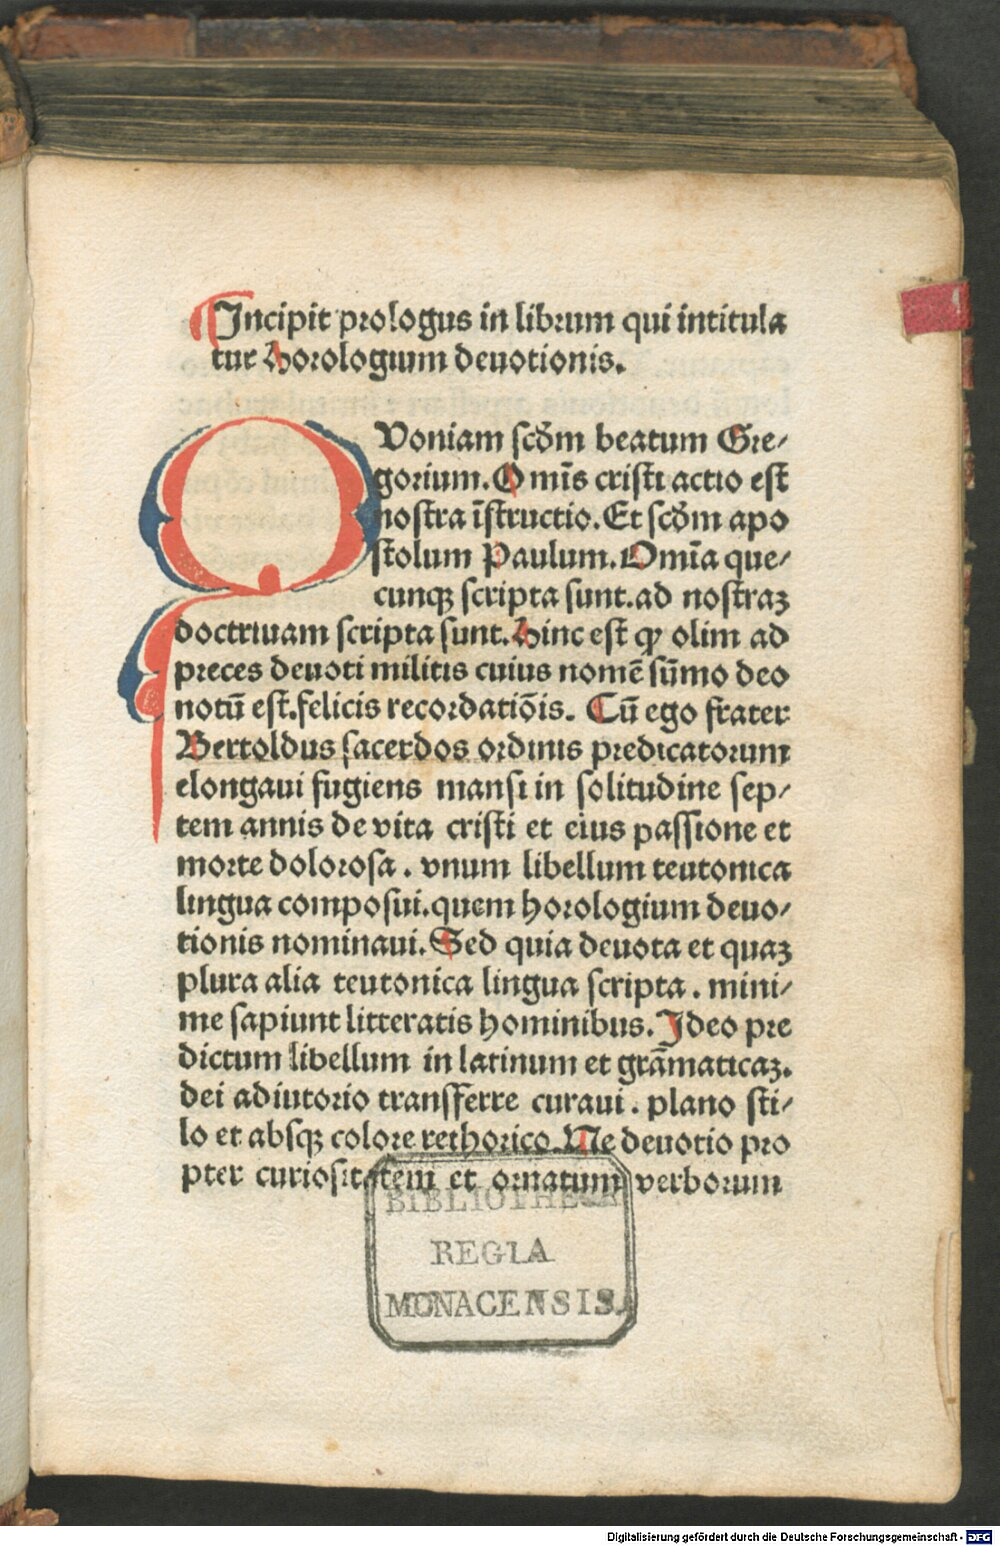 ¶Incipit prologus in librum qui intitula
tur Horologium deuotionis.
QVoniam scďm beatum Gre⸗
gorium. Omīs cristi actio est
nostra īstructio. Et scďm apo
stolum Paulum. Omīa que⸗
cunqꝫ scripta sunt. ad nostraꝫ
doctrinam scripta sunt. Hinc est ꝙ olim ad
preces deuoti militis cuius nomē sūmo deo
notū est. felicis recordatiōis. Cū ego frater
Bertoldus sacerdos ordinis predicatorum
elongaui fugiens mansi in solitudine sep⸗
tem annis de vita cristi et eius passione et
morte dolorosa. vnum libellum teutonica
lingua composui. quem horologium deuo⸗
tionis nominaui. Sed quia deuota et quaꝫ
plura alia teutonica lingua scripta. mini⸗
me sapiunt litteratis hominibus. Ideo pre
dictum libellum in latinum et grāmaticaꝫ.
dei adiutorio transferre curaui. plano sti⸗
lo et absqꝫ colore rethorico. Ne deuotio pro
pter curiositatem et ornatum verborum
BIBLIOTHECA
REGIA
MONACENSIS.
Digitalisierung gefördert durch die Deutsche Forschungsgemeinschaft - DFG